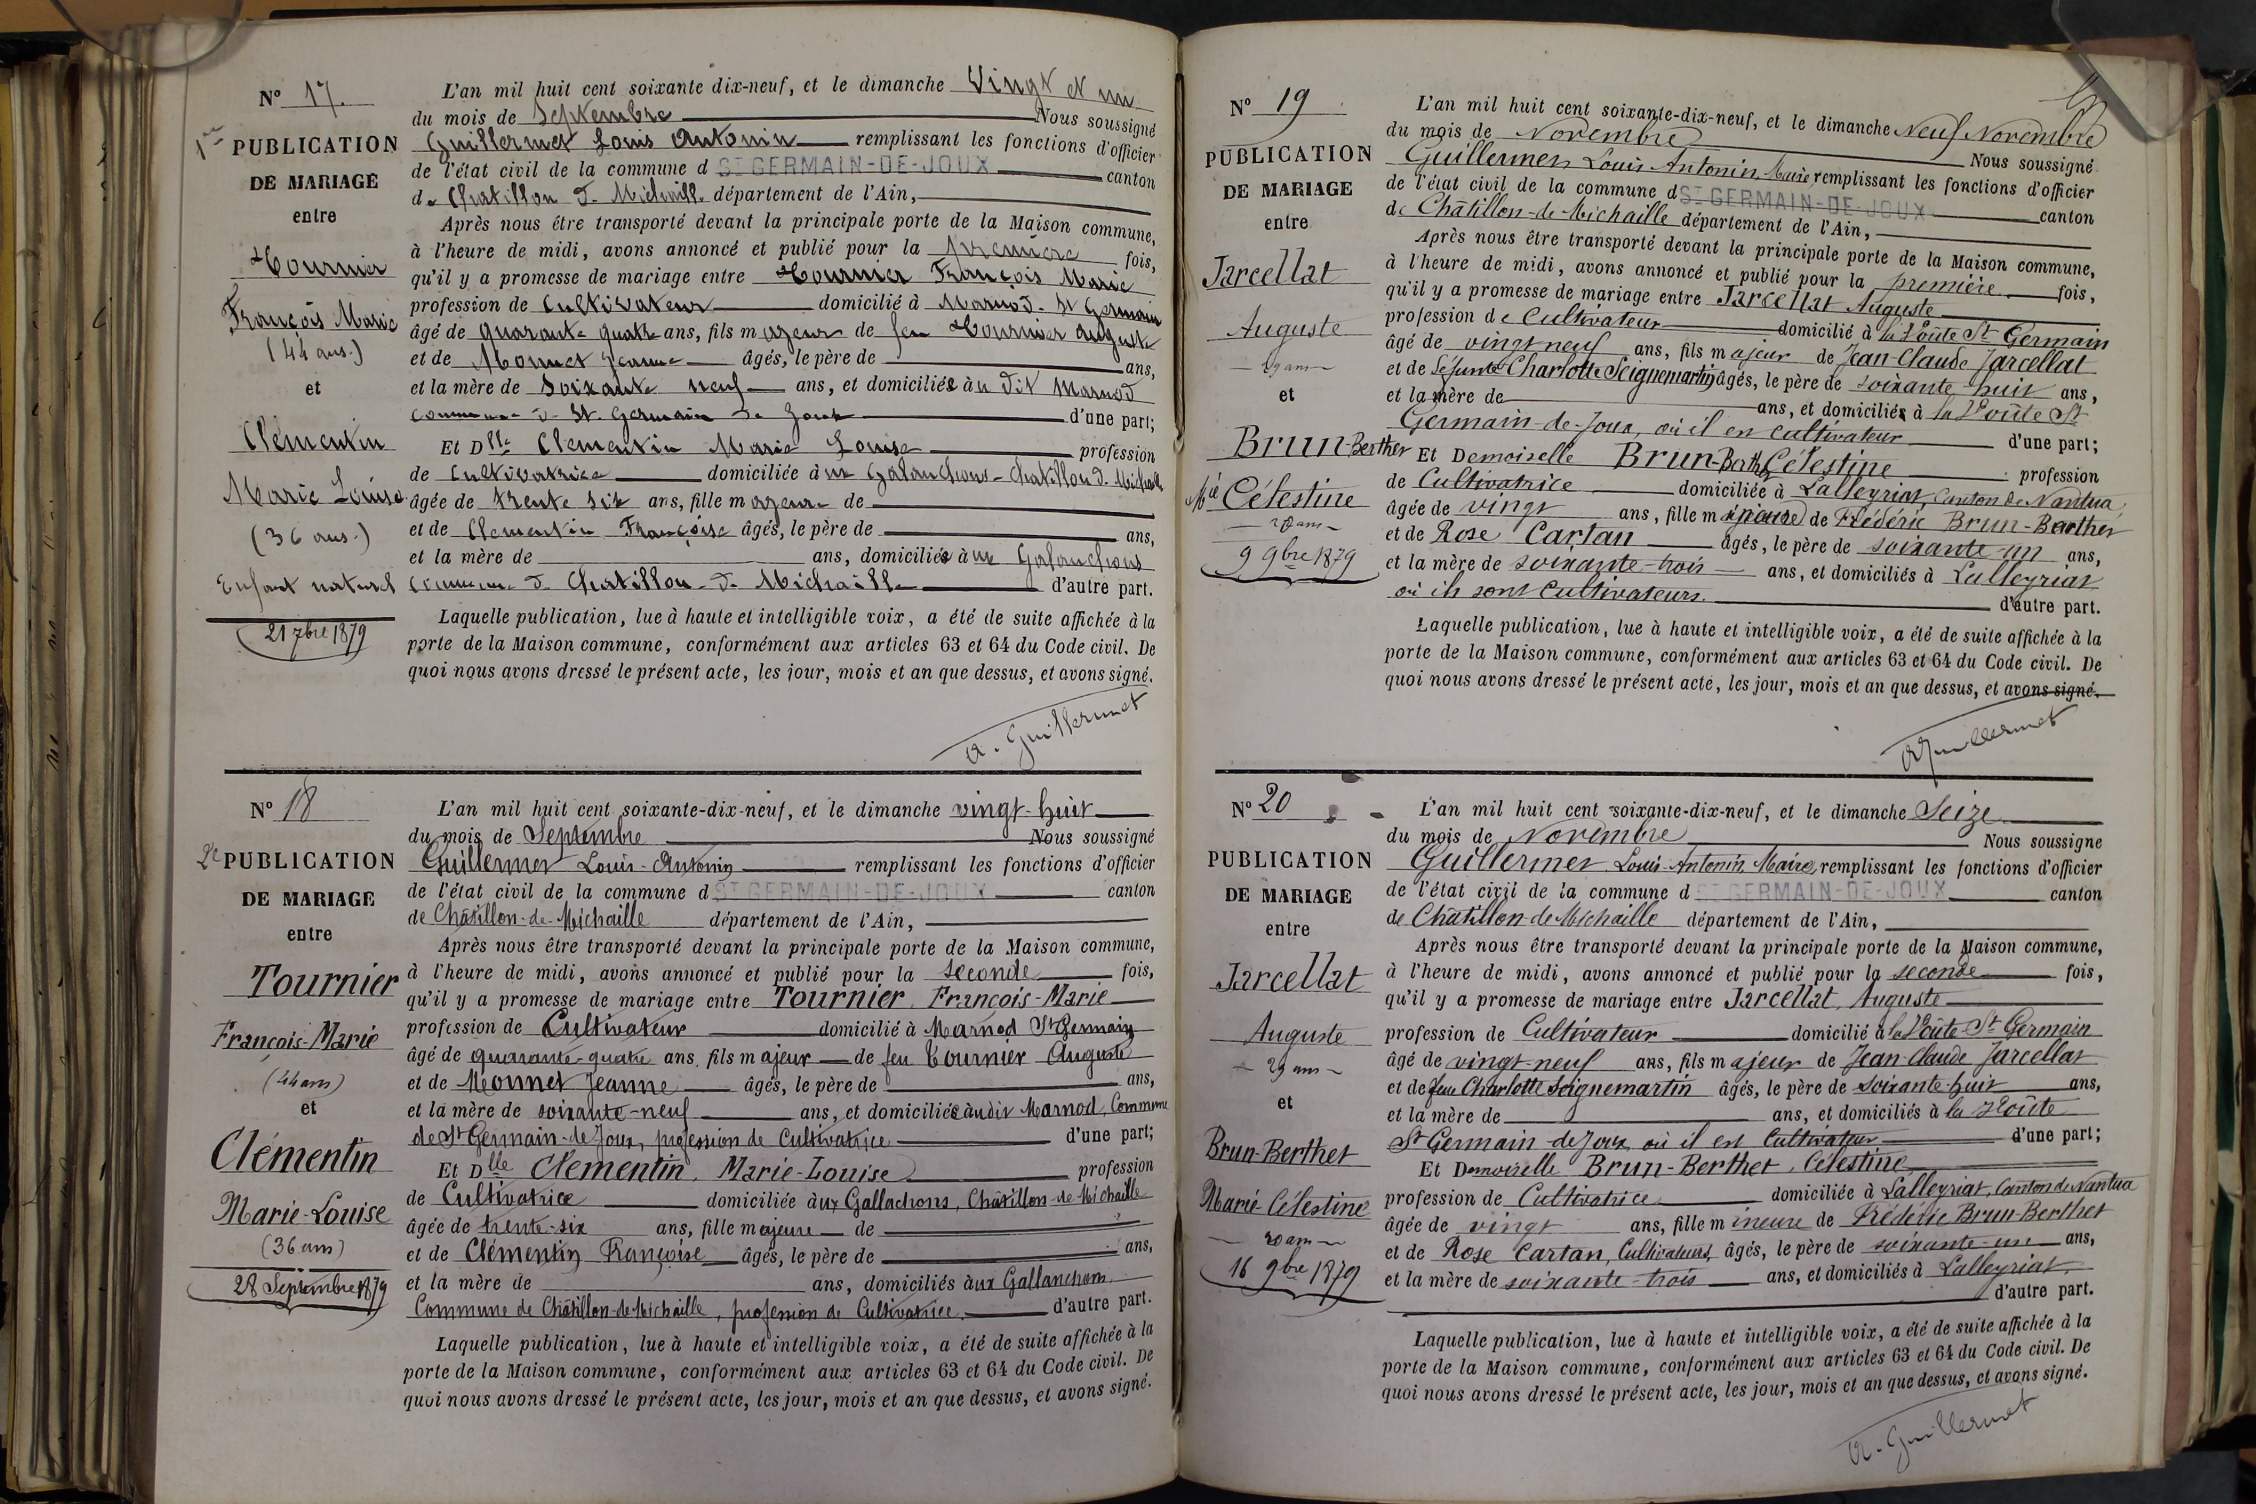 N° 17.
1re PUBLICATION
DE MARIAGE
entre
Tournier
François Marie
(44 ans.)
et
Clémentin
Marie Louise
(36 ans.)
Enfant naturel
21 7bre 1879
L'an mil huit cent soixante dix-neuf, et le dimanche Vingt et un
du mois de Septembre Nous soussigné
Guillermet Louis Antonin remplissant les fonctions d'officier
de l'état civil de la commune d ST GERMAIN-DE-JOUX canton
de Chatillon d. Michaille département de l'Ain,
Après nous être transporté devant la principale porte de la Maison commune,
à l'heure de midi, avons annoncé et publié pour la première fois,
qu'il y a promesse de mariage entre Tournier François Marie
profession de Cultivateur domicilié à Marnod. St Germain
âgé de quarante quatre ans, fils majeur de feu Tournier Auguste
et de Monnet Jeanne âgés, le père de ans,
et la mère de Soixante neuf ans, et domiciliés au dit Marnod
commune d. St. Germain de Joux d'une part;
Et Dlle Clementin Marie Louise profession
de Cultivatrice domiciliée à ux Galanchons - Chatillon d. Michaille
âgée de trente six ans, fille majeure de
et de Clementin Françoise âgés, le père de ans,
et la mère de ans, domiciliés à ux Galanchons
Commune d. Chatillon d. Michaille d'autre part.
Laquelle publication, lue à haute et intelligible voix, a été de suite affichée à la
porte de la Maison commune, conformément aux articles 63 et 64 du Code civil. De
quoi nous avons dressé le présent acte, les jour, mois et an que dessus, et avons signé.
A. Guillermet
N° 18
2e PUBLICATION
DE MARIAGE
entre
Tournier
François-Marie
(44 ans)
et
Clémentin
Marie-Louise
(36 ans)
28 Septembre 1879
L'an mil huit cent soixante-dix-neuf, et le dimanche vingt-huit
du mois de Septembre Nous soussigné
Guillermet Louis-Antonin remplissant les fonctions d'officier
de l'état civil de la commune d ST GERMAIN-DE-JOUX canton
de Châtillon-de-Michaille département de l'Ain,
Après nous être transporté devant la principale porte de la Maison commune,
à l'heure de midi, avons annoncé et publié pour la seconde fois,
qu'il y a promesse de mariage entre Tournier, François-Marie
profession de Cultivateur domicilié à Marnod St Germain
âgé de quarante-quatre ans, fils majeur de feu Tournier Auguste
et de Monnet Jeanne âgés, le père de ans,
et la mère de soixante-neuf ans, et domiciliés au dit Marnod, Commune
de St Germain-de-Joux, profession de Cultivatrice d'une part;
Et Dlle Clémentin, Marie-Louise profession
de Cultivatrice domiciliée à ux Gallachons, Châtillon-de-Michaille
âgée de trente-six ans, fille majeure de
et de Clémentin Françoise âgés, le père de ans,
et la mère de ans, domiciliés à ux Gallanchons
Commune de Châtillon-de-Michaille, profession de Cultivatrice. d'autre part.
Laquelle publication, lue à haute et intelligible voix, a été de suite affichée à la
porte de la Maison commune, conformément aux articles 63 et 64 du Code civil. De
quoi nous avons dressé le présent acte, les jour, mois et an que dessus, et avons signé.
N° 19
PUBLICATION
DE MARIAGE
entre
Jarcellat
Auguste
29 ans
et
Brun-Berthet
Mie Célestine
20 ans
9 9bre 1879
L'an mil huit cent soixante-dix-neuf, et le dimanche Neuf Novembre
du mois de Novembre Nous soussigné
Guillermet Louis Antonin, Maire, remplissant les fonctions d'officier
de l'état civil de la commune d ST GERMAIN-DE-JOUX canton
de Châtillon-de-Michaille département de l'Ain,
Après nous être transporté devant la principale porte de la Maison commune,
à l'heure de midi, avons annoncé et publié pour la première fois,
qu'il y a promesse de mariage entre Jarcellat Auguste
profession de Cultivateur domicilié à la Voûte St Germain
âgé de vingt neuf ans, fils majeur de Jean-Claude Jarcellat
et de défunte Charlotte Seignemartin âgés, le père de soixante-huit ans,
et la mère de ans, et domiciliés à la Voûte St
Germain-de-Joux, où il est cultivateur d'une part;
Et Demoiselle Brun-Berthet Célestine profession
de Cultivatrice domiciliée à Lalleyriat, Canton de Nantua
âgée de vingt ans, fille m de Frédéric Brun-Berthet
et de Rose Cartan âgés, le père de soixante-un ans,
et la mère de soixante-trois ans, et domiciliés à Lalleyriat
où ils sont Cultivateurs. d'autre part.
Laquelle publication, lue à haute et intelligible voix, a été de suite affichée à la
porte de la Maison commune, conformément aux articles 63 et 64 du Code civil. De
quoi nous avons dressé le présent acte, les jour, mois et an que dessus, et avons signé.
A Guillermet
N° 20
PUBLICATION
DE MARIAGE
entre
Jarcellat
Auguste
29 ans
et
Brun-Berthet
Marie-Célestine
20 ans
16 9bre 1879
L'an mil huit cent soixante-dix-neuf, et le dimanche Seize
du mois de Novembre Nous soussigné
Guillermet Louis-Antonin, Maire, remplissant les fonctions d'officier
de l'état civil de la commune d ST GERMAIN-DE-JOUX canton
de Châtillon-de-Michaille département de l'Ain,
Après nous être transporté devant la principale porte de la Maison commune,
à l'heure de midi, avons annoncé et publié pour la seconde fois,
qu'il y a promesse de mariage entre Jarcellat, Auguste
profession de Cultivateur domicilié à la Voûte St Germain
âgé de vingt-neuf ans, fils majeur de Jean Claude Jarcellat
et de feue Charlotte Seignemartin âgés, le père de soixante-huit ans,
et la mère de ans, et domiciliés à la Voûte
St Germain-de-Joux où il est Cultivateur d'une part;
Et Demoiselle Brun-Berthet, Célestine
profession de Cultivatrice domiciliée à Lalleyriat, Canton de Nantua
âgée de vingt ans, fille mineure de Frédéric Brun-Berthet
et de Rose Cartan, Cultivateurs, âgés, le père de soixante-un ans,
et la mère de soixante-trois ans, et domiciliés à Lalleyriat,
d'autre part.
Laquelle publication, lue à haute et intelligible voix, a été de suite affichée à la
porte de la Maison commune, conformément aux articles 63 et 64 du Code civil. De
quoi nous avons dressé le présent acte, les jour, mois et an que dessus, et avons signé.
A. Guillermet